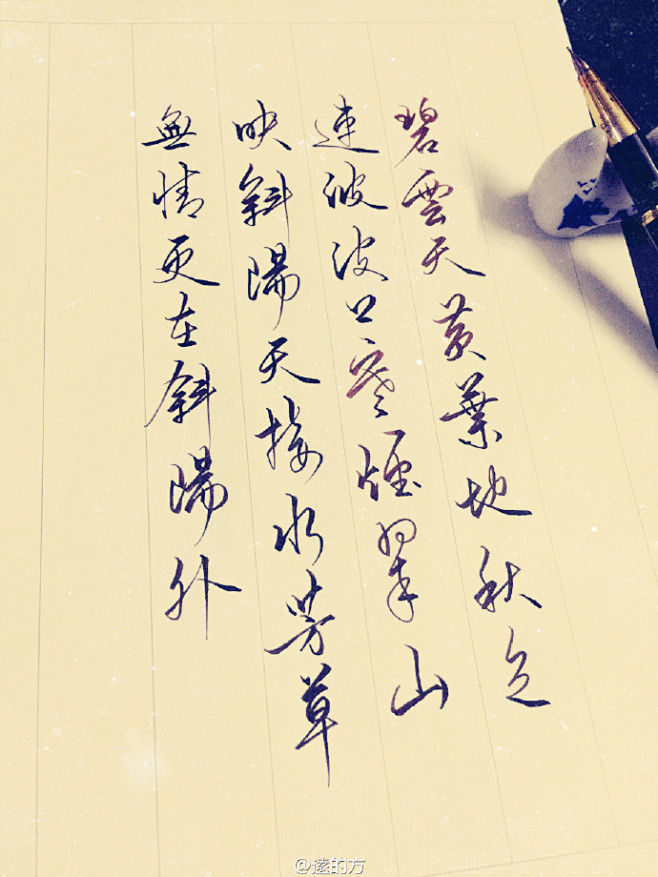 碧雲天黃葉地秋色
連波波上寒煙翠山
映斜陽天接水芳草
無情更在斜陽外
@逺的方